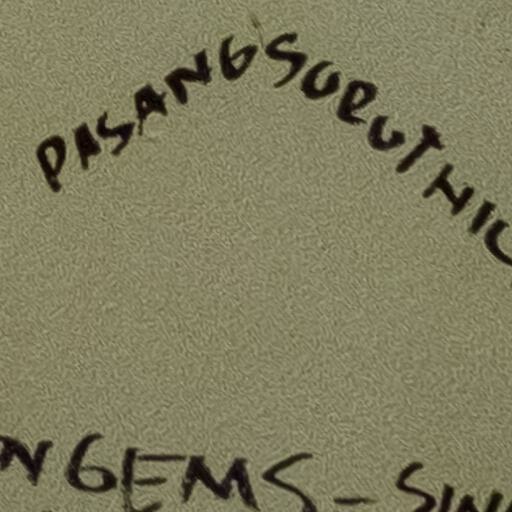 PASANGSURUTHIC
NGEMS-SIN